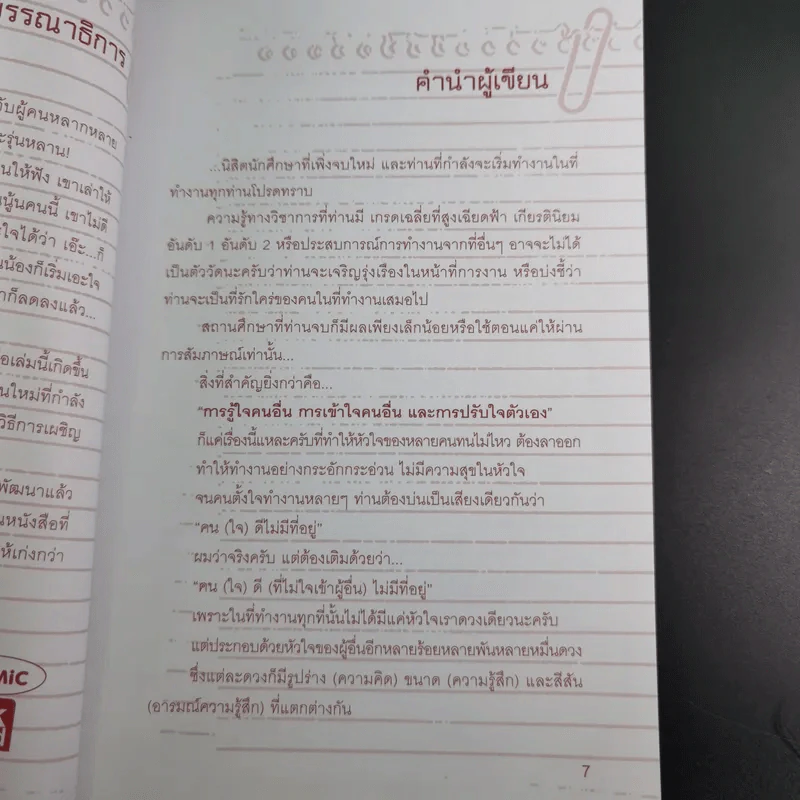 รรณาธิการ
ับผู้คนหลากหลาย
ะรุ่นหลาน!
นให้ฟัง เขาเล่าให้
นู้นคนนี้ เขาไม่ดี
ะใจได้ว่า เอ๊ะ...ก็
นน้องก็เริ่มเอะใจ
าก็ลดลงแล้ว...
อเล่มนี้เกิดขึ้น
นใหม่ที่กำลัง
วิธีการเผชิญ
พัฒนาแล้ว
นหนังสือที่
ห้เก่งกว่า
MiC
คำนำผู้เขียน
...นิสิตนักศึกษาที่เพิ่งจบใหม่ และท่านที่กำลังจะเริ่มทำงานในที่
ทำงานทุกท่านโปรดทราบ
ความรู้ทางวิชาการที่ท่านมี เกรดเฉลี่ยที่สูงเฉียดฟ้า เกียรตินิยม
อันดับ 1 อันดับ 2 หรือประสบการณ์การทำงานจากที่อื่นๆ อาจจะไม่ได้
เป็นตัววัดนะครับว่าท่านจะเจริญรุ่งเรืองในหน้าที่การงาน หรือบ่งชี้ว่า
ท่านจะเป็นที่รักใคร่ของคนในที่ทำงานเสมอไป
สถานศึกษาที่ท่านจบก็มีผลเพียงเล็กน้อยหรือใช้ตอนแค่ให้ผ่าน
การสัมภาษณ์เท่านั้น...
สิ่งที่สำคัญยิ่งกว่าคือ...
"การรู้ใจคนอื่น การเข้าใจคนอื่น และการปรับใจตัวเอง"
ก็แค่เรื่องนี้แหละครับที่ทำให้หัวใจของหลายคนทนไม่ไหว ต้องลาออก
ทำให้ทำงานอย่างกระอักกระอ่วน ไม่มีความสุขในหัวใจ
จนคนตั้งใจทำงานหลายๆ ท่านต้องบ่นเป็นเสียงเดียวกันว่า
"คน (ใจ) ดีไม่มีที่อยู่"
ผมว่าจริงครับ แต่ต้องเติมด้วยว่า...
"คน (ใจ) ดี (ที่ไม่ใจเข้าผู้อื่น) ไม่มีที่อยู่"
เพราะในที่ทำงานทุกที่นั้นไม่ได้มีแค่หัวใจเราดวงเดียวนะครับ
แต่ประกอบด้วยหัวใจของผู้อื่นอีกหลายร้อยหลายพันหลายหมื่นดวง
ซึ่งแต่ละดวงก็มีรูปร่าง (ความคิด) ขนาด (ความรู้สึก) และสีสัน
(อารมณ์ความรู้สึก) ที่แตกต่างกัน
7